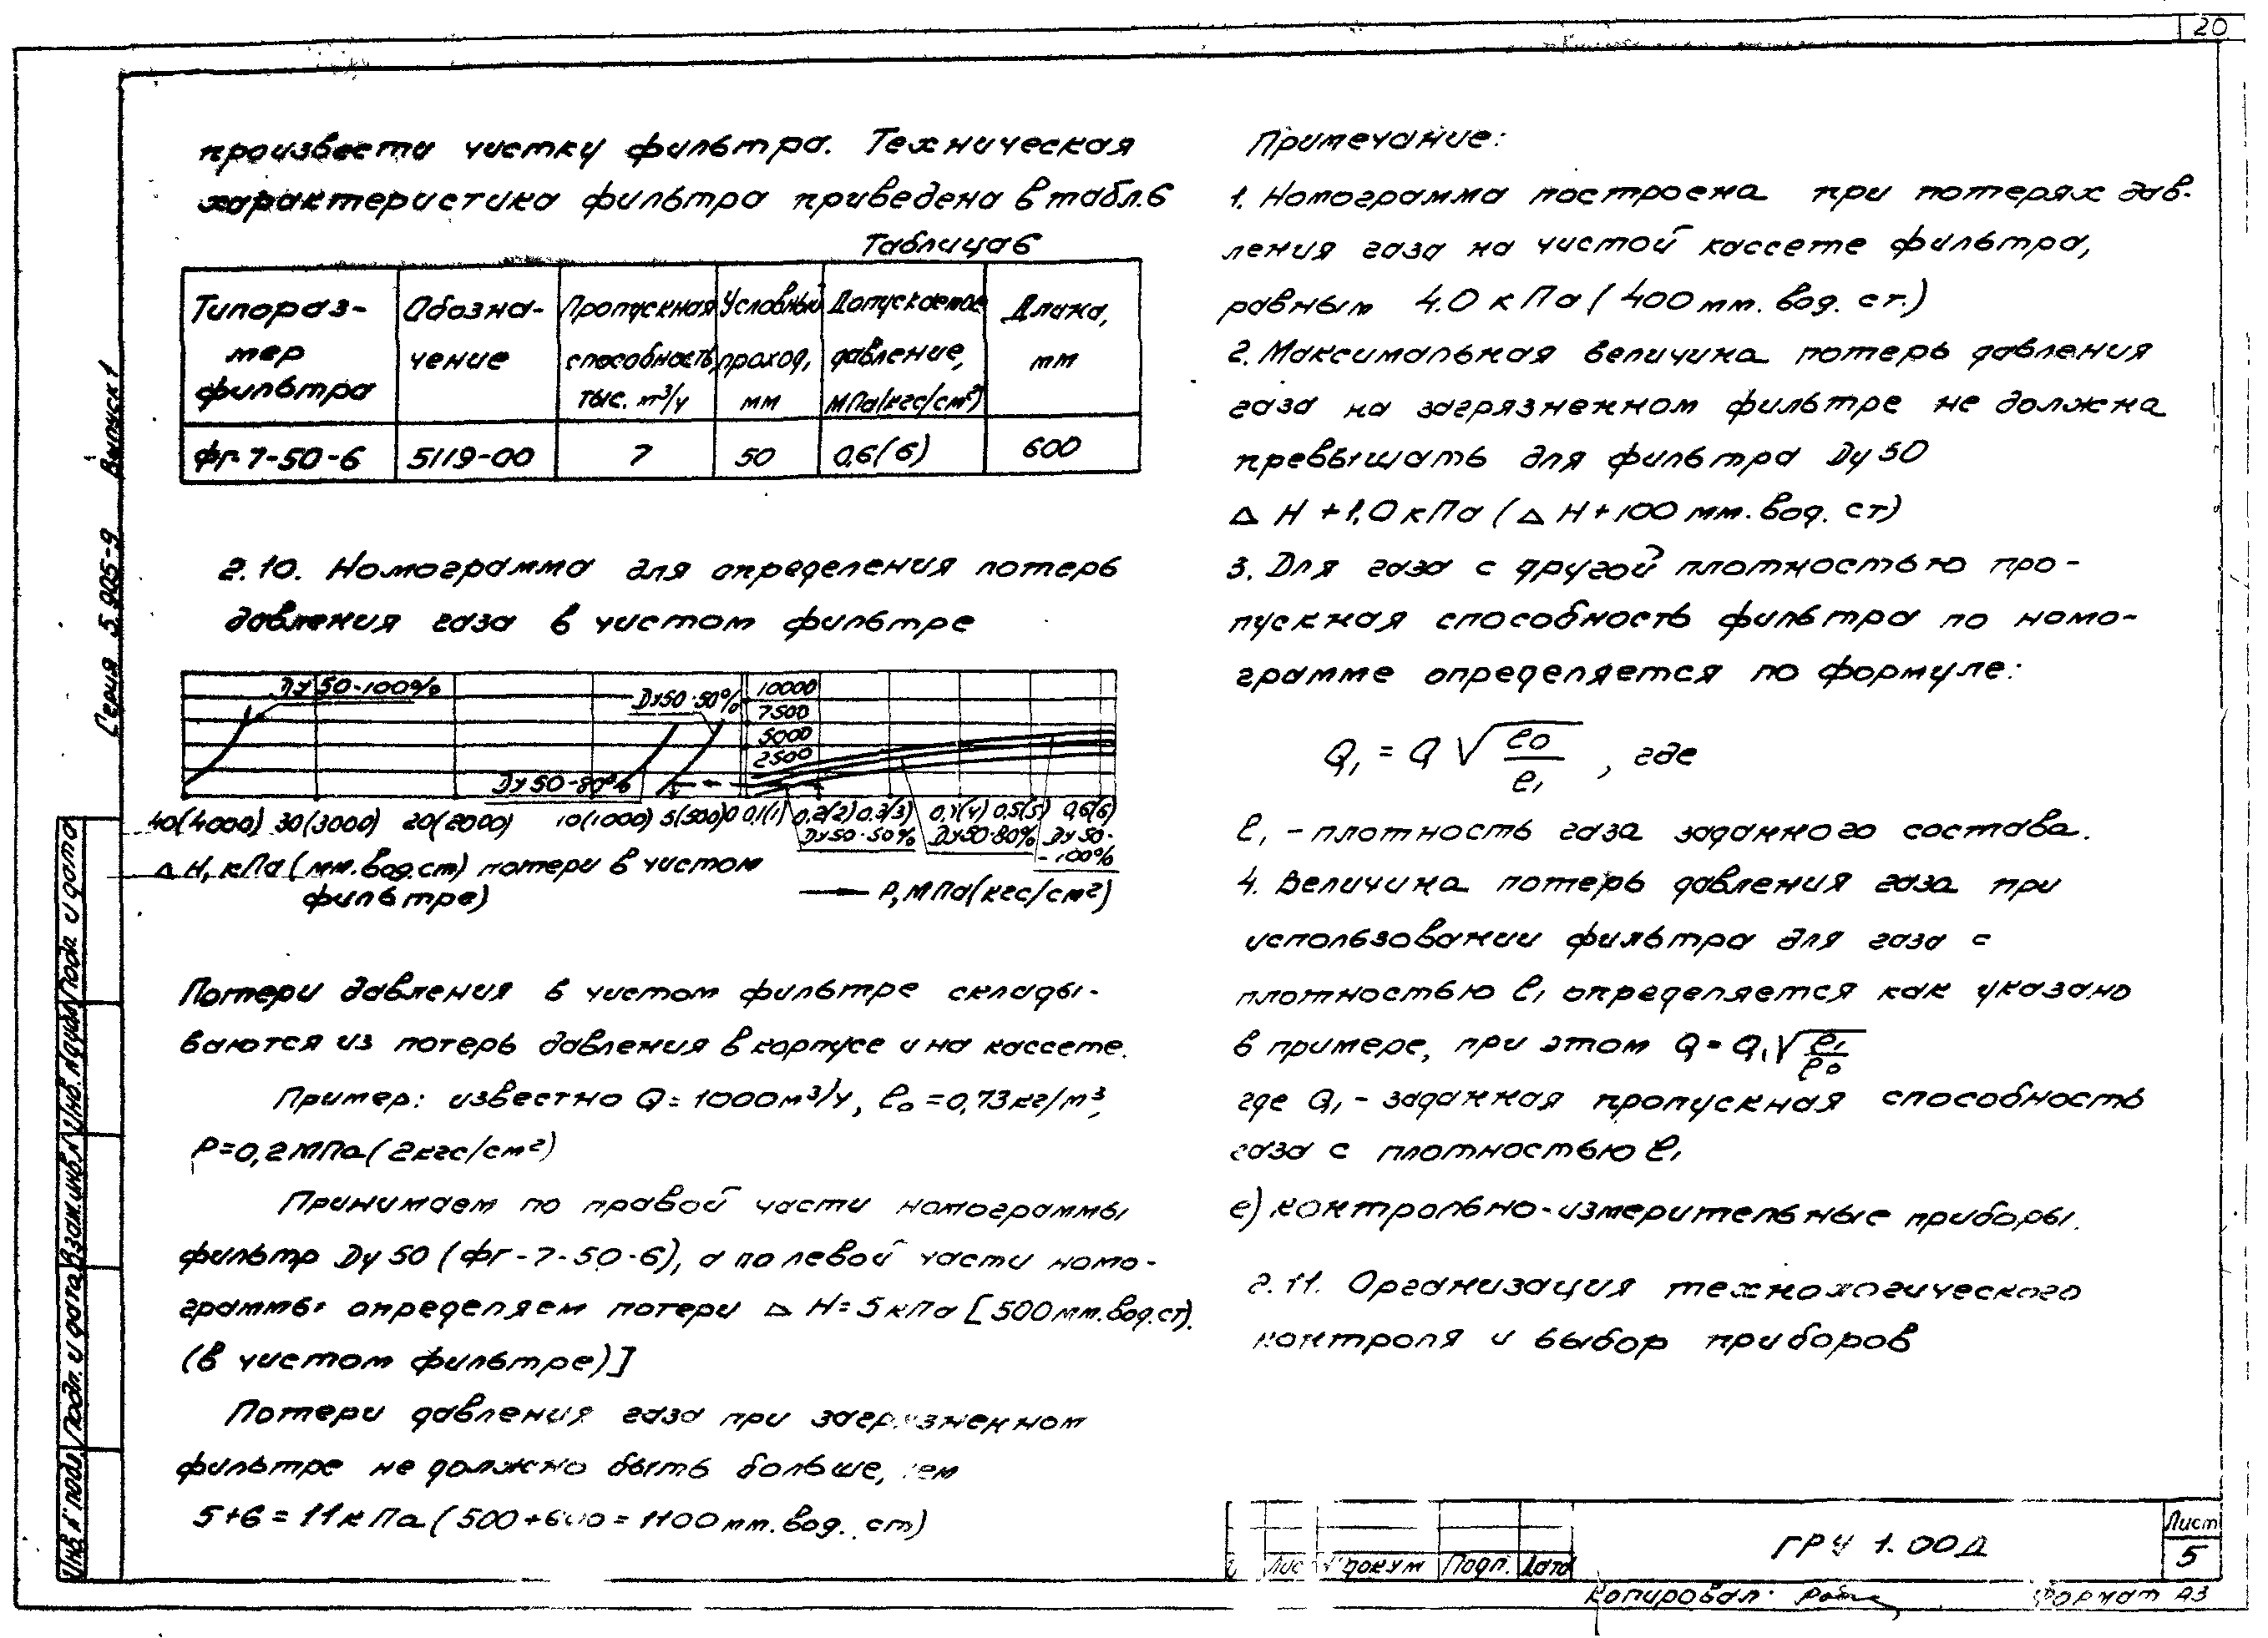 20
произвести чистку фильтра. Техническая
характеристика фильтра приведена в табл.6
Таблица 6
Типораз- Обозна- Пропускная Условный Допускаемое Длина,
мер чение способность, проход, давление, мм
фильтра тыс. м³/ч мм МПа(кгс/см²)
ФГ-7-50-6 5119-00 7 50 0,6(6) 600
2.10. Номограмма для определения потерь
давления газа в чистом фильтре
Ду 50-100% Ду50-50% 10000
7500
5000
2500
Ду 50-80%
40(4000) 30(3000) 20(2000) 10(1000) 5(500) 0 0,1(1) 0,2(2) 0,3(3) 0,4(4) 0,5(5) 0,6(6)
Ду50-50% Ду50-80% Ду 50-
-100%
Δ H, кПа (мм.вод.ст) потери в чистом
фильтре)
P, МПа(кгс/см²)
Потери давления в чистом фильтре склады-
ваются из потерь давления в корпусе и на кассете.
Пример: известно Q = 1000м³/ч, ρ₀ = 0,73кг/м³,
P=0,2МПа(2кгс/см²)
Принимаем по правой части номограммы
фильтр Ду 50 (ФГ-7-50-6), а по левой части номо-
граммы определяем потери Δ H = 5кПа [500мм.вод.ст).
(в чистом фильтре)]
Потери давления газа при загрязненном
фильтре не должно быть больше, чем
5+6 = 11кПа (500+600 = 1100мм.вод. ст)
Примечание:
1. Номограмма построена при потерях дав-
ления газа на чистой кассете фильтра,
равным 4.0 кПа (400 мм. вод. ст.)
2. Максимальная величина потерь давления
газа на загрязненном фильтре не должна
превышать для фильтра Ду 50
Δ H + 1,0 кПа (Δ H + 100 мм. вод. ст)
3. Для газа с другой плотностью про-
пускная способность фильтра по номо-
грамме определяется по формуле:
Q₁ = Q √ρ₀/ρ₁ , где
ρ₁ - плотность газа заданного состава.
4. Величина потерь давления газа при
использовании фильтра для газа с
плотностью ρ₁ определяется как указано
в примере, при этом Q = Q₁√ρ₁/ρ₀
где Q₁ - заданная пропускная способность
газа с плотностью ρ₁
е) контрольно-измерительные приборы.
2.11. Организация технологического
контроля и выбор приборов
Серия 5.905-9 Выпуск 1
Инв. № подл. Подп. и дата Взам. инв. № Инв. № дубл. Подп. и дата
Лис № докум Подп. Дата
ГРУ 1.00Д
Лист
5
Копировал:
Формат А3